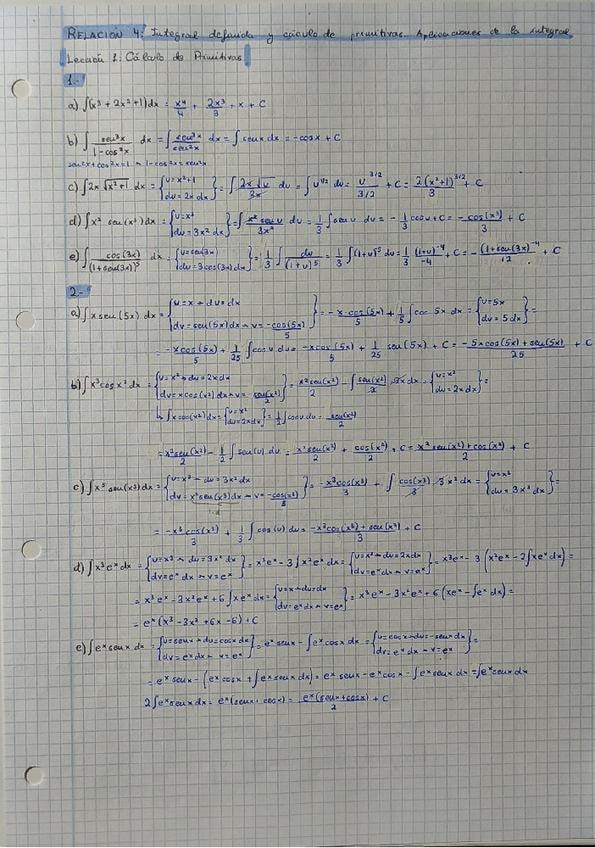 RELACIÓN 4: Integral definida y cálculo de primitivas. Aplicaciones de la integral.
Lección 1: Cálculo de Primitivas
1.-
a) ∫(x³ + 2x² + 1)dx = x⁴/4 + 2x³/3 + x + C
b) ∫ sen³x/(1-cos²x) dx = ∫ sen³x/sen²x dx = ∫ senx dx = -cosx + C
sen²x + cos²x = 1 → 1-cos²x = sen²x
c) ∫2x √(x²+1) dx = {u = x²+1 / du = 2x dx} = ∫ 2x√u/2x du = ∫ u^(1/2) du = u^(3/2)/(3/2) + C = 2(x²+1)^(3/2)/3 + C
d) ∫x² sen(x³)dx = {u = x³ / du = 3x² dx} = ∫ x² sen u/3x² du = 1/3 ∫sen u du = -1/3 cos u + C = -cos(x³)/3 + C
e) ∫ cos(3x)/(1+sen(3x))⁵ dx = {u = sen(3x) / du = 3cos(3x)dx} = 1/3 ∫ du/(1+u)⁵ = 1/3 ∫(1+u)⁻⁵ du = 1/3 (1+u)⁻⁴/-4 + C = -(1+sen(3x))⁻⁴/12 + C
2.-
a) ∫x sen(5x) dx = {u = x → du = dx / dv = sen(5x)dx → v = -cos(5x)/5} = -x·cos(5x)/5 + 1/5 ∫cos 5x dx = {u = 5x / du = 5dx} =
= -x cos(5x)/5 + 1/25 ∫cos u du = -x cos(5x)/5 + 1/25 sen(5x) + C = -5x cos(5x) + sen(5x)/25 + C
b) ∫x³ cos x² dx = {u = x² → du = 2x dx / dv = x cos(x²)dx → v = sen(x²)/2} = x² sen(x²)/2 - ∫ sen(x²)/2 · 2x dx = {u = x² / du = 2x dx} =
↳ ∫x cos(x²)dx = {u = x² / du = 2x dx} = 1/2 ∫cos u du = sen(x²)/2
= x² sen(x²)/2 - 1/2 ∫sen(u) du = x² sen(x²)/2 + cos(x²)/2 + C = x² sen(x²) + cos(x²)/2 + C
c) ∫x⁵ sen(x³)dx = {u = x³ → du = 3x² dx / dv = x² sen(x³)dx → v = -cos(x³)/3} = -x³ cos(x³)/3 + ∫ cos(x³)/3 · 3x² dx = {u = x³ / du = 3x² dx} =
= -x³ cos(x³)/3 + 1/3 ∫cos(u) du = -x³ cos(x³) + sen(x³)/3 + C
d) ∫x³eˣdx = {u = x³ → du = 3x² dx / dv = eˣdx → v = eˣ} = x³eˣ - 3∫x²eˣdx = {u = x² → du = 2x dx / dv = eˣdx → v = eˣ} = x³eˣ - 3 (x²eˣ - 2∫xeˣdx) =
= x³eˣ - 3x²eˣ + 6∫xeˣdx = {u = x → du = dx / dv = eˣdx → v = eˣ} = x³eˣ - 3x²eˣ + 6 (xeˣ - ∫eˣdx) =
= eˣ(x³ - 3x² + 6x - 6) + C
e) ∫eˣ senx dx = {u = senx → du = cosx dx / dv = eˣdx → v = eˣ} = eˣ senx - ∫eˣ cosx dx = {u = cosx → du = -senx dx / dv = eˣdx → v = eˣ} =
= eˣ senx - (eˣ cosx + ∫eˣ senx dx) = eˣ senx - eˣ cosx - ∫eˣ senx dx = ∫eˣ senx dx
2∫eˣ senx dx = eˣ(senx + cosx) = eˣ(senx + cosx)/2 + C